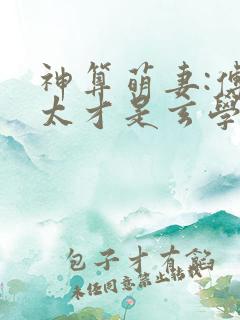 神算萌妻:傅
太才是玄學
包子才有餡
未经同意禁止转载